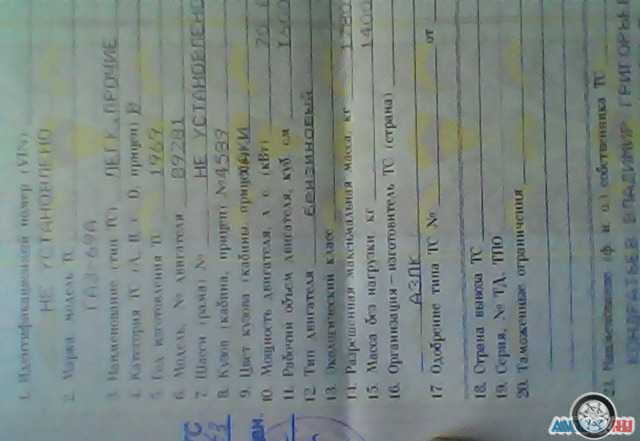 1. Идентификационный номер (VIN)
НЕ УСТАНОВЛЕНО
2. Марка, модель Т
ГАЗ-69А
3. Наименование (тип ТС) ЛЕГК. ПРОЧИЕ
4. Категория ТС (А, В, С, D, прицеп) В
5. Год изготовления Т 1969
6. Модель, № двигателя 89281
7. Шасси (рама) № НЕ УСТАНОВЛЕНО
8. Кузов (кабина, прицеп) № 4589
9. Цвет кузова (кабины, прицепа)
10. Мощность двигателя, л. с. (кВт) 70
11. Рабочий объем двигателя, куб. см
12. Тип двигателя бензиновый
13. Экологический класс
14. Разрешенная максимальная масса, кг
15. Масса без нагрузки, кг 140
16. Организация-изготовитель ТС (страна)
АЗЛК
17. Одобрение типа ТС № от
18. Страна вывоза ТС
19. Серия, № ТД, ТПО
20. Таможенные ограничения
21. Наименование (ф. и. о.) собственника ТС
ВЛАДИМИР ГРИГОРЬЕВ